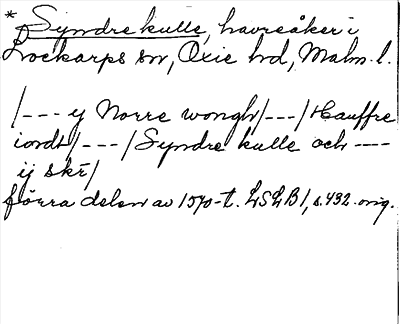 * Syndre kulle, havreåker i
Lockarps sn, Oxie hd, Malm. l.
/--- y Norre wongh/---/Hauffre
iordt/---/Syndre kulle och ----
ij skr̄/
förra delen av 1570-t. LSLB 1, s. 432. orig.